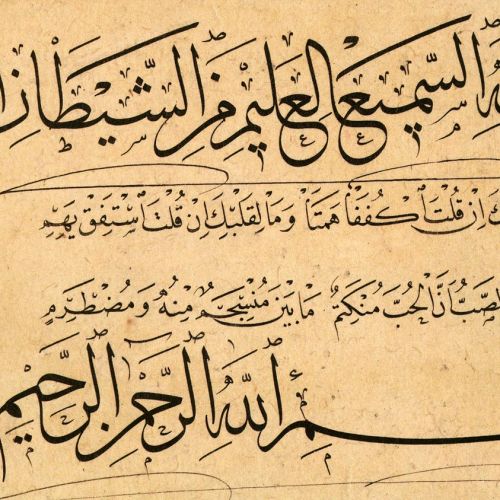 السَّمِيعِ الْعَلِيمِ مِنَ الشَّيْطَانِ
اِنْ قُلْتَ اكْفُفَا هَمَتَا وَمَا لِقَلْبِكَ اِنْ قُلْتَ اسْتَفِقْ يَهِمِ
الصَّبُّ اَنَّ الْحُبَّ مُنْكَتِمٌ مَا بَيْنَ مُنْسَجِمٍ مِنْهُ وَمُضْطَرِمِ
ـسْمِ اللهِ الرَّحْمٰنِ الرَّحِيمِ